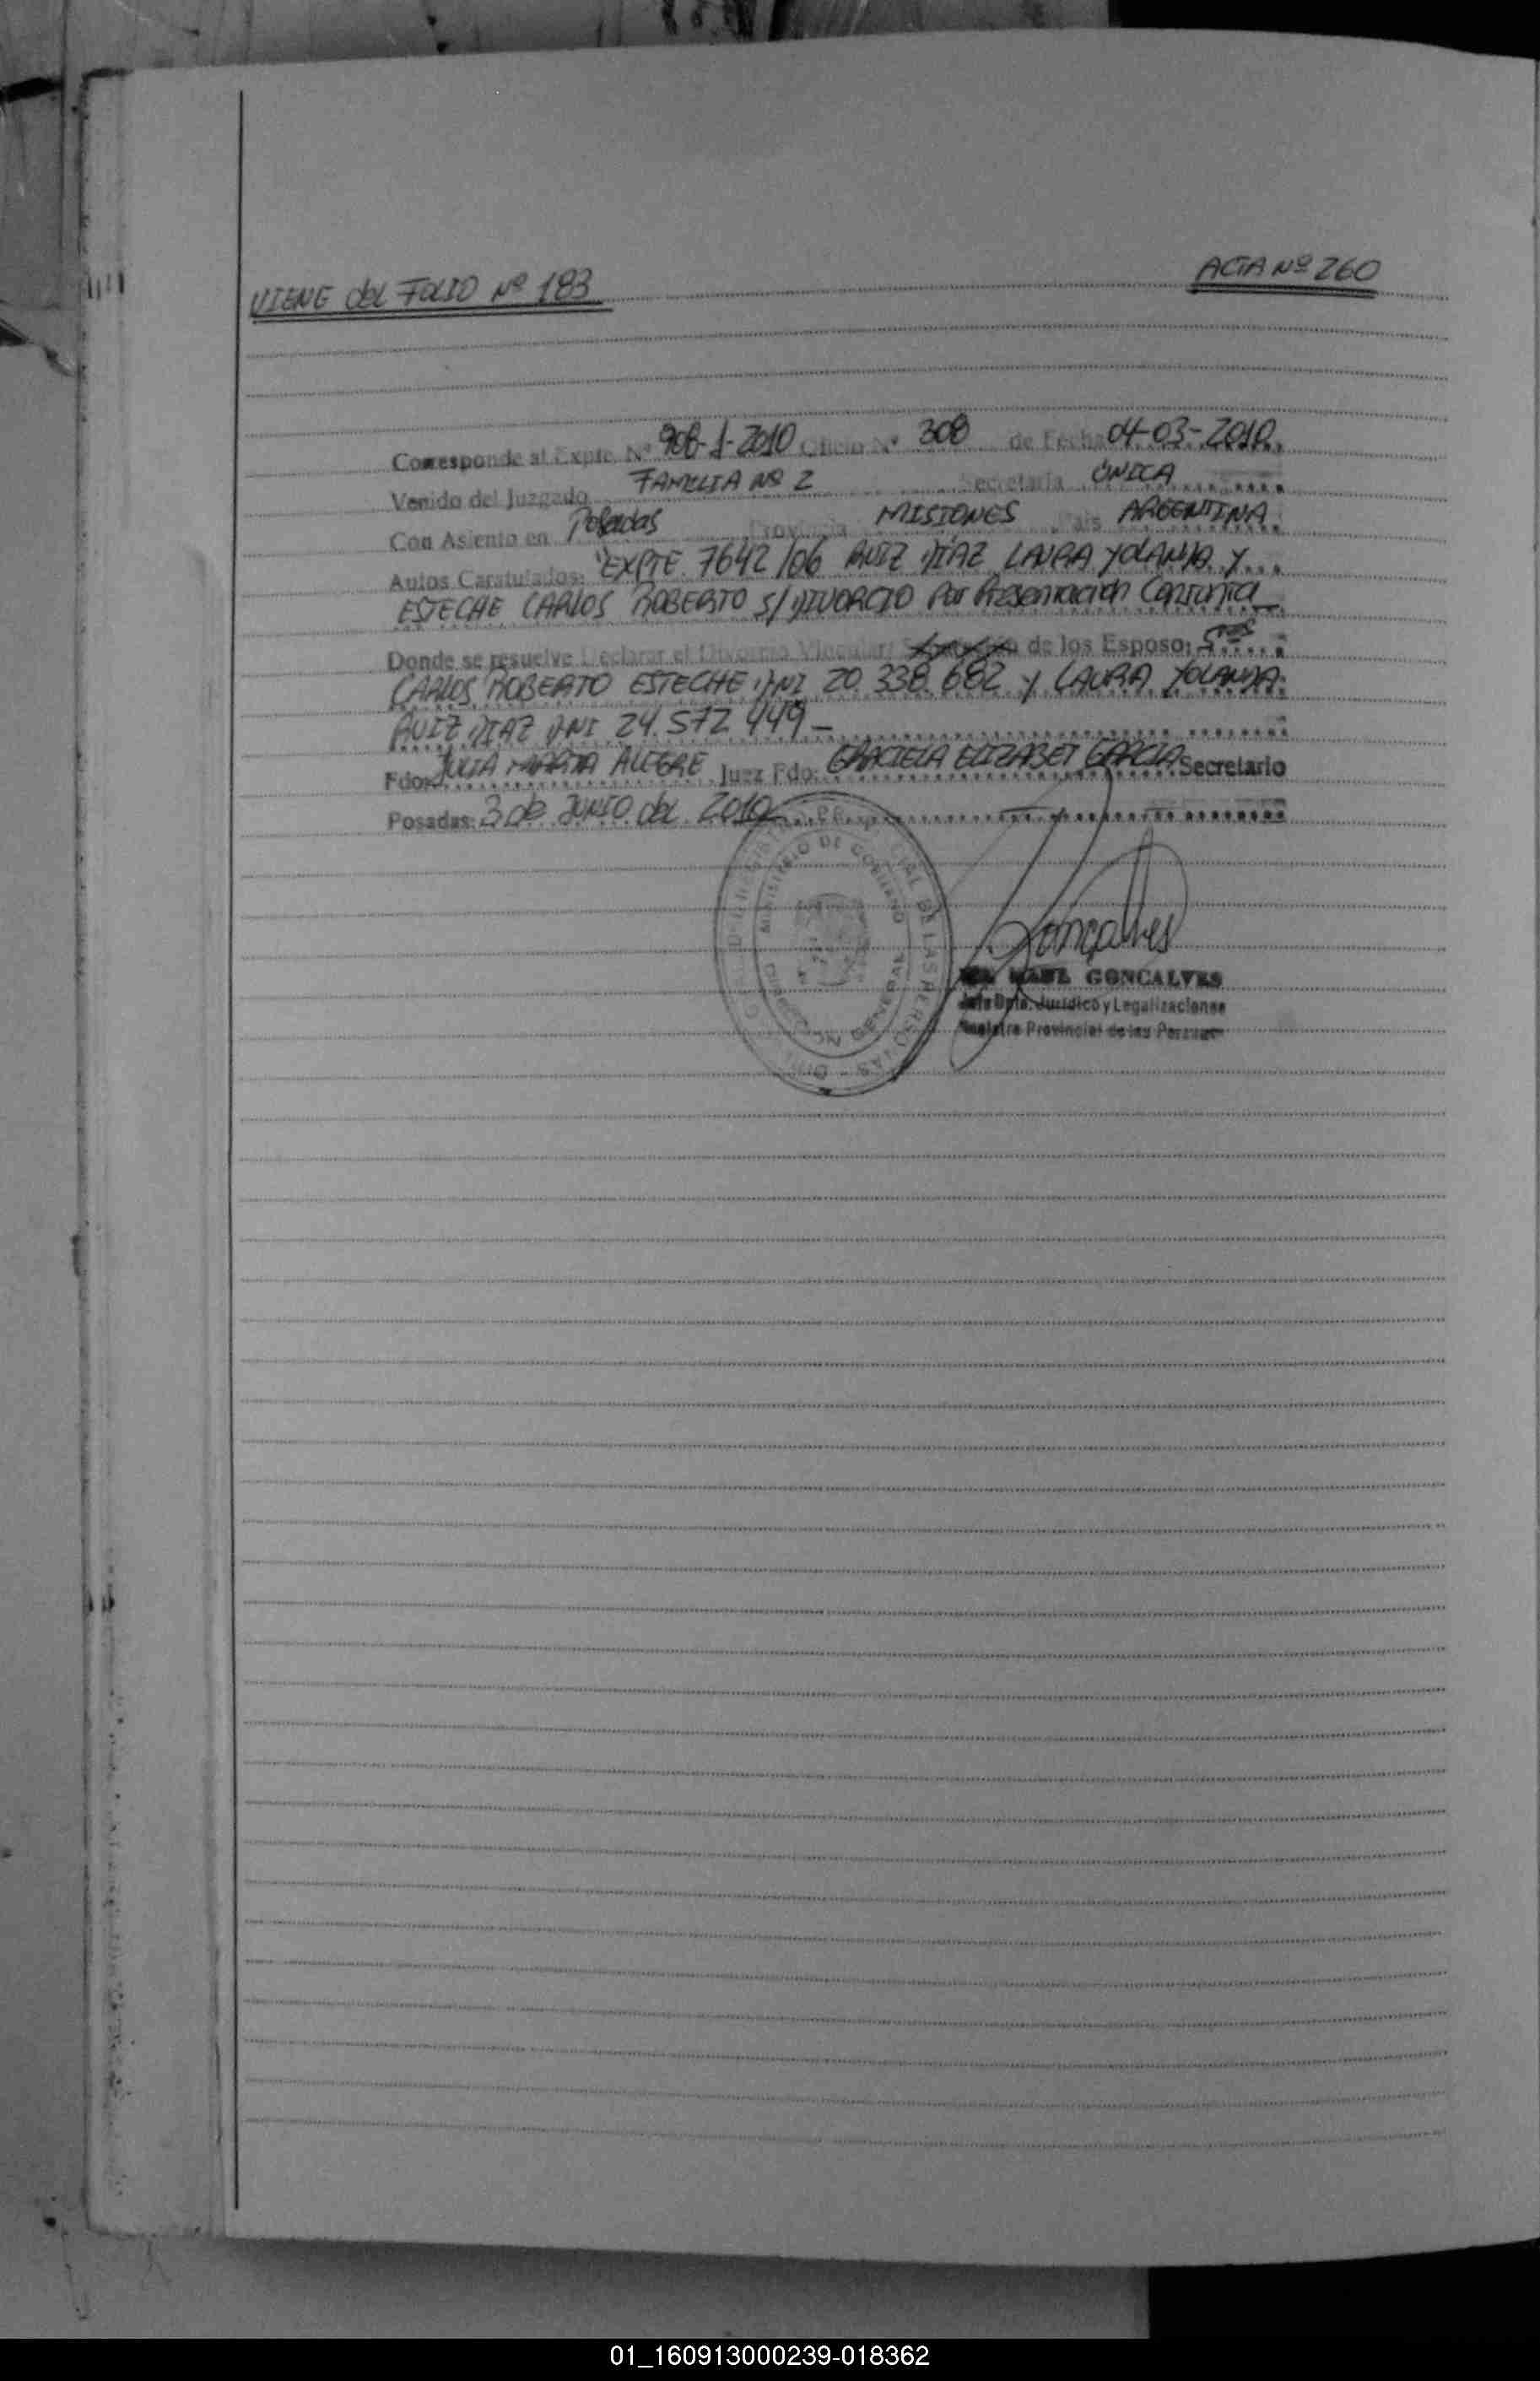 VIENE del FOLIO Nº 183
ACTA Nº 260
Corresponde al Expte. Nº 908-1-2010 Oficio Nº 308 de Fecha 04-03-2010.
Venido del Juzgado FAMILIA Nº 2 Secretaría ÚNICA
Con Asiento en Posadas Provincia MISIONES País ARGENTINA
Autos Caratulados: "EXPTE 7642/06 RUIZ DÍAZ LAURA YOLANDA Y
ESTECHE CARLOS ROBERTO S/ DIVORCIO Por Presentación Conjunta
Donde se resuelve Declarar el Divorcio Vincular de los Esposo: Sres
CARLOS ROBERTO ESTECHE DNI 20.338.682 y LAURA YOLANDA
RUIZ DIAZ DNI 24.572.449 -
Fdo: JULIA MARTA ALEGRE Juez Fdo: GRACIELA ELIZABET GARCIA Secretario
Posadas: 3 de JUNIO del 2010
MINISTERIO DE GOBIERNO
Goncalves
GONCALVES
Jefe Dpto. Jurídico y Legalizaciones
Registro Provincial de las Personas
01_160913000239-018362